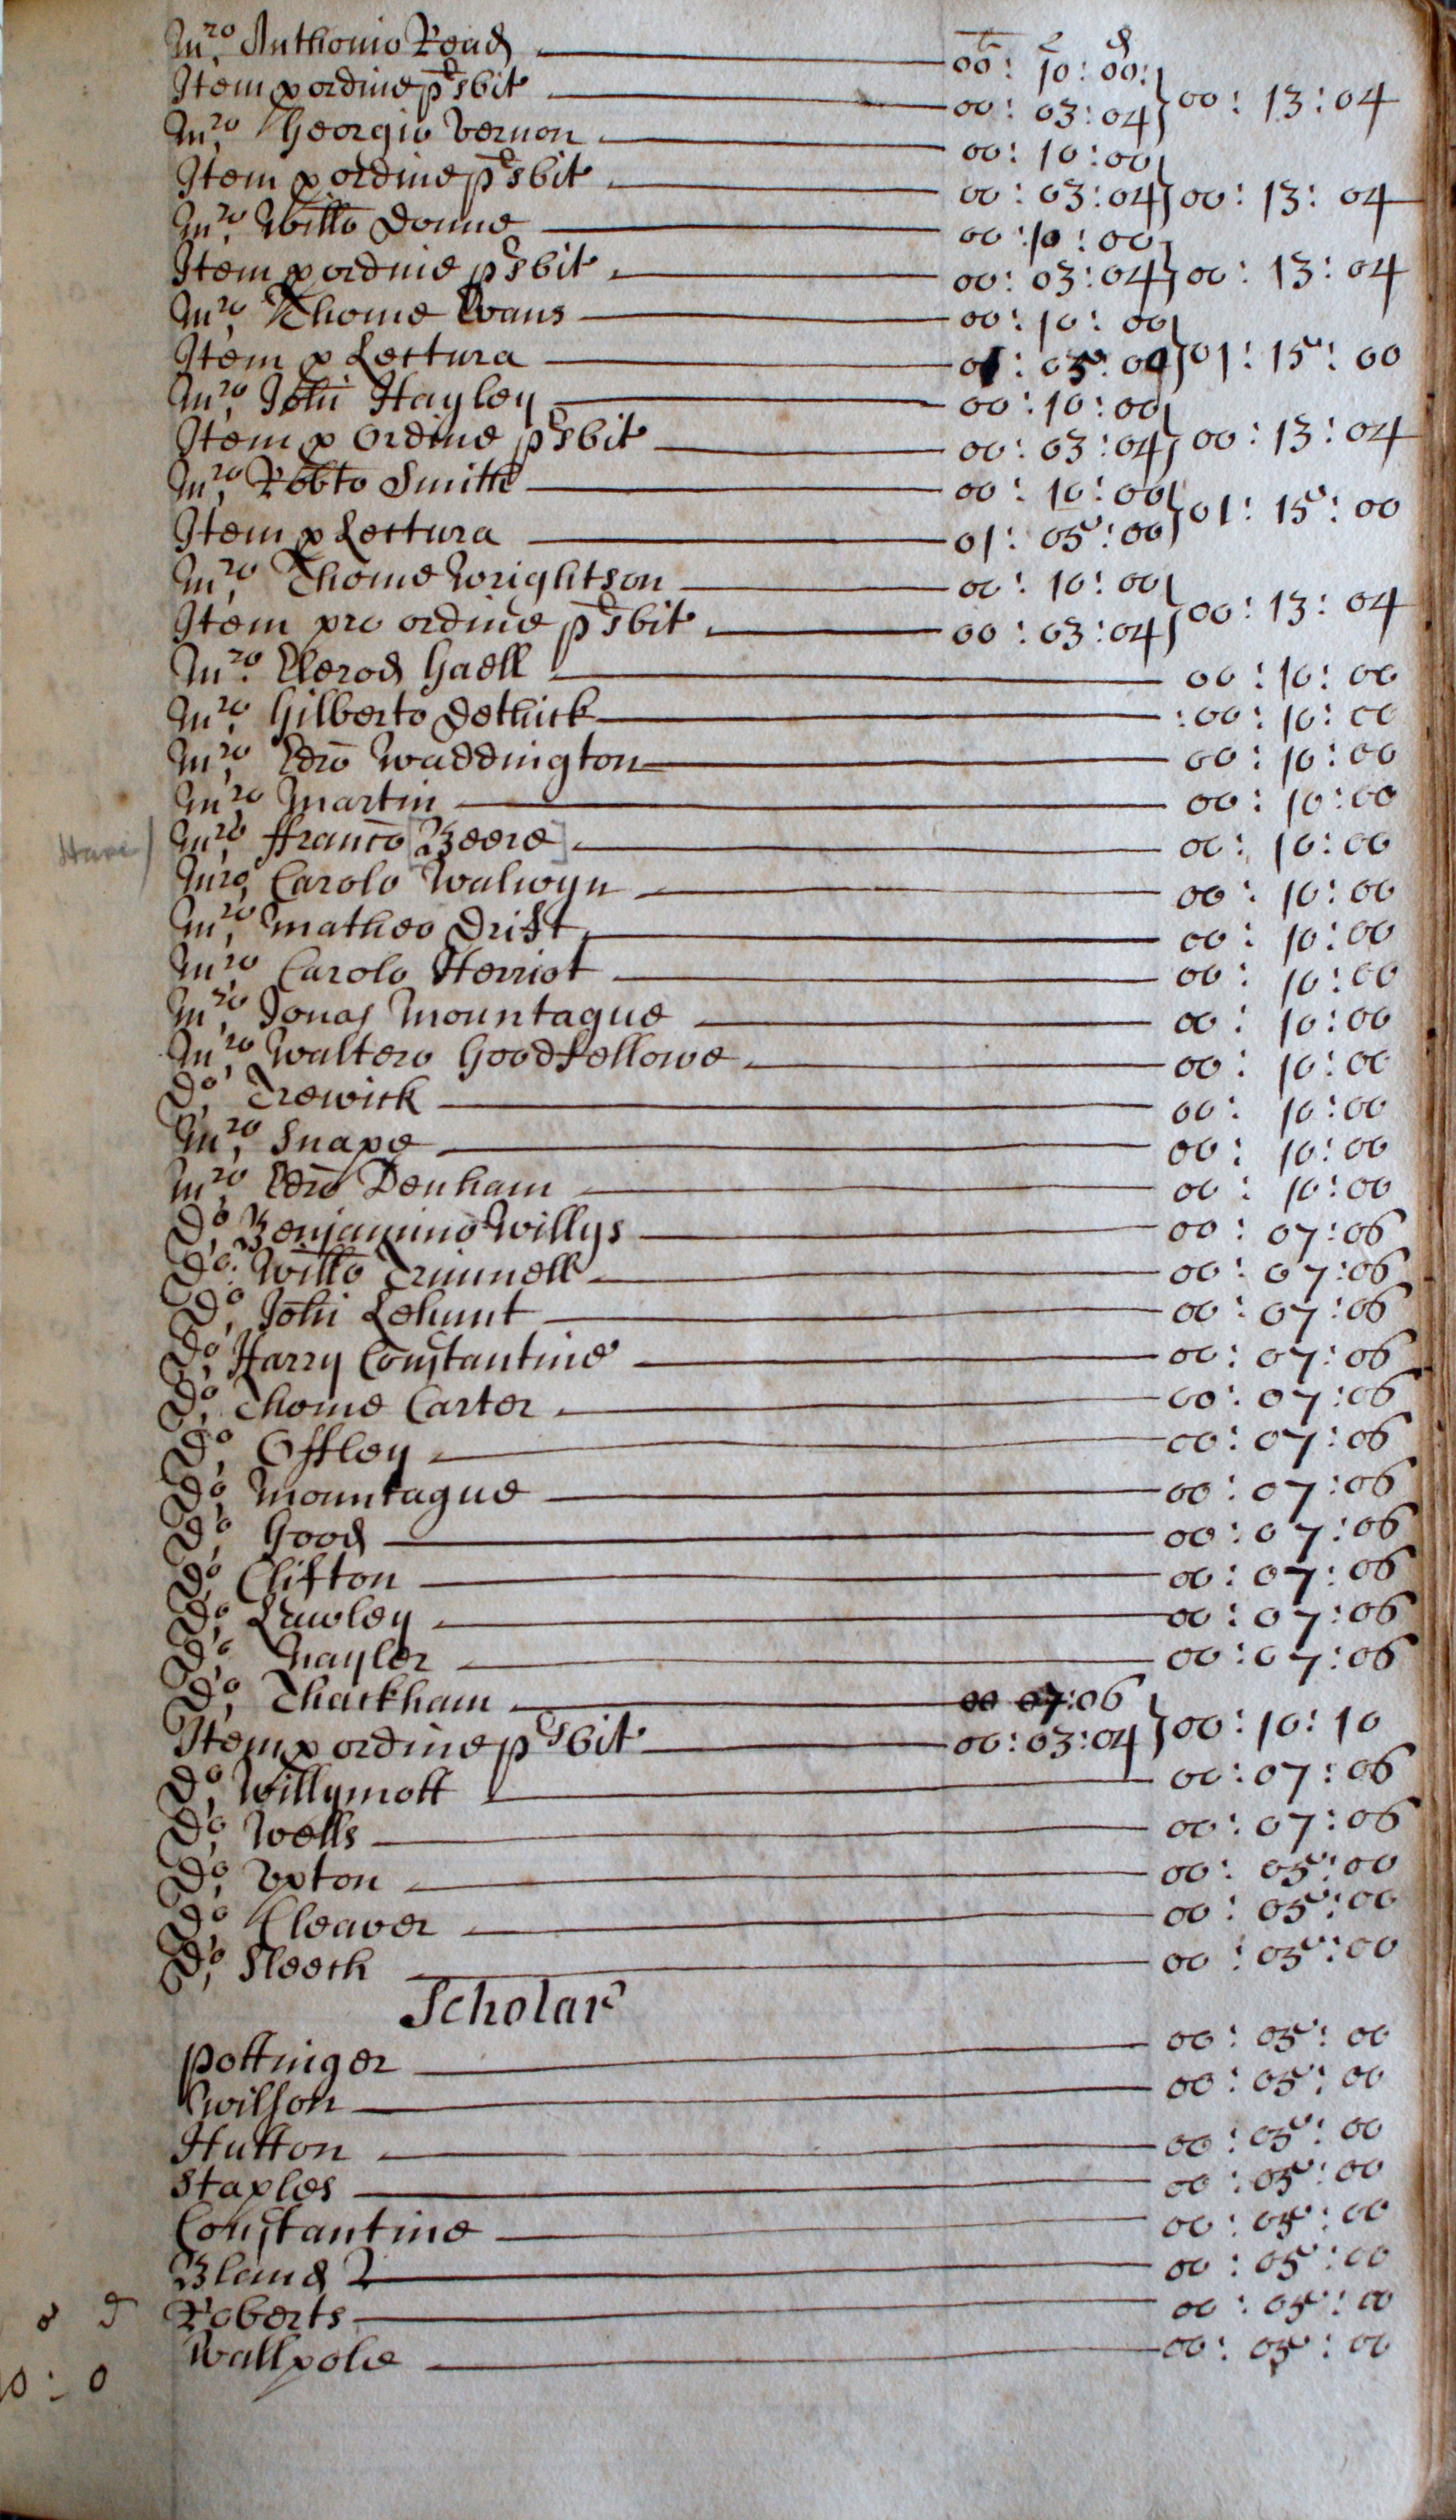 li s d
Mro. Anthonio Read 00: 10: 00:
Item p ordine psbit 00: 03: 04 } 00: 13: 04
Mro, Georgio Vernon 00: 10: 00
Item p ordine psbit 00: 03: 04 } 00: 13: 04
Mro, Willo Donne 00: 10: 00
Item p ordine psbit 00: 03: 04 } 00: 13: 04
Mro, Thome Evans 00: 10: 00
Item p Lectura 01: 05: 00 } 01: 15: 00
Mro, Johi Hayley 00: 10: 00
Item p Ordine psbit 00: 03: 04 } 00: 13: 04
Mro, Robto Smith 00: 10: 00
Item p Lectura 01: 05: 00 } 01: 15: 00
Mro, Thome Wrightson 00: 10: 00
Item pro ordine psbit 00: 03: 04 } 00: 13: 04
Mro. Elerod Gaell 00: 10: 00
Mro, Gilberto Dethick :00: 10: 00
Mro, Edro Waddington 00: 10: 00
Mro, Martin 00: 10: 00
Hare) Mro, ffranco [Beere] 00: 10: 00
Mro, Carolo Walwyn 00: 10: 00
Mro, Matheo Drift 00: 10: 00
Mro, Carolo Herriot 00: 10: 00
Mro, Jonas Mountague 00: 10: 00
Mro, Waltero Goodfellowe 00: 10: 00
Do, Trewick 00: 10: 00
Mro, Snape 00: 10: 00
Mro, Edro Denham 00: 10: 00
Do, Benjamino Willys 00: 07: 06
Do. Willo Trimnell 00: 07: 06
Do, Johi Lehunt 00: 07: 06
Do, Harry Constantine 00: 07: 06
Do, Thome Carter 00: 07: 06
Do, Offley 00: 07: 06
Do, Mountague 00: 07: 06
Do, Good 00: 07: 06
Do, Clifton 00: 07: 06
Do, Lawley 00: 07: 06
Do, Nayler 00: 07: 06
Do, Thackham 00 07: 06
Item p ordine psbit 00: 03: 04 } 00: 10: 10
Do, Willymott 00: 07: 06
Do, Wells 00: 07: 06
Do, Upton 00: 05: 00
Do, Cleaver 00: 05: 00
Do, Sleech 00: 05: 00
Scholar
Pottinger 00: 05: 00
Wilson 00: 05: 00
Hutton 00: 05: 00
Staples 00: 05: 00
Constantine 00: 05: 00
Bland 2 00: 05: 00
Roberts 00: 05: 00
Wallpole 00: 05: 00